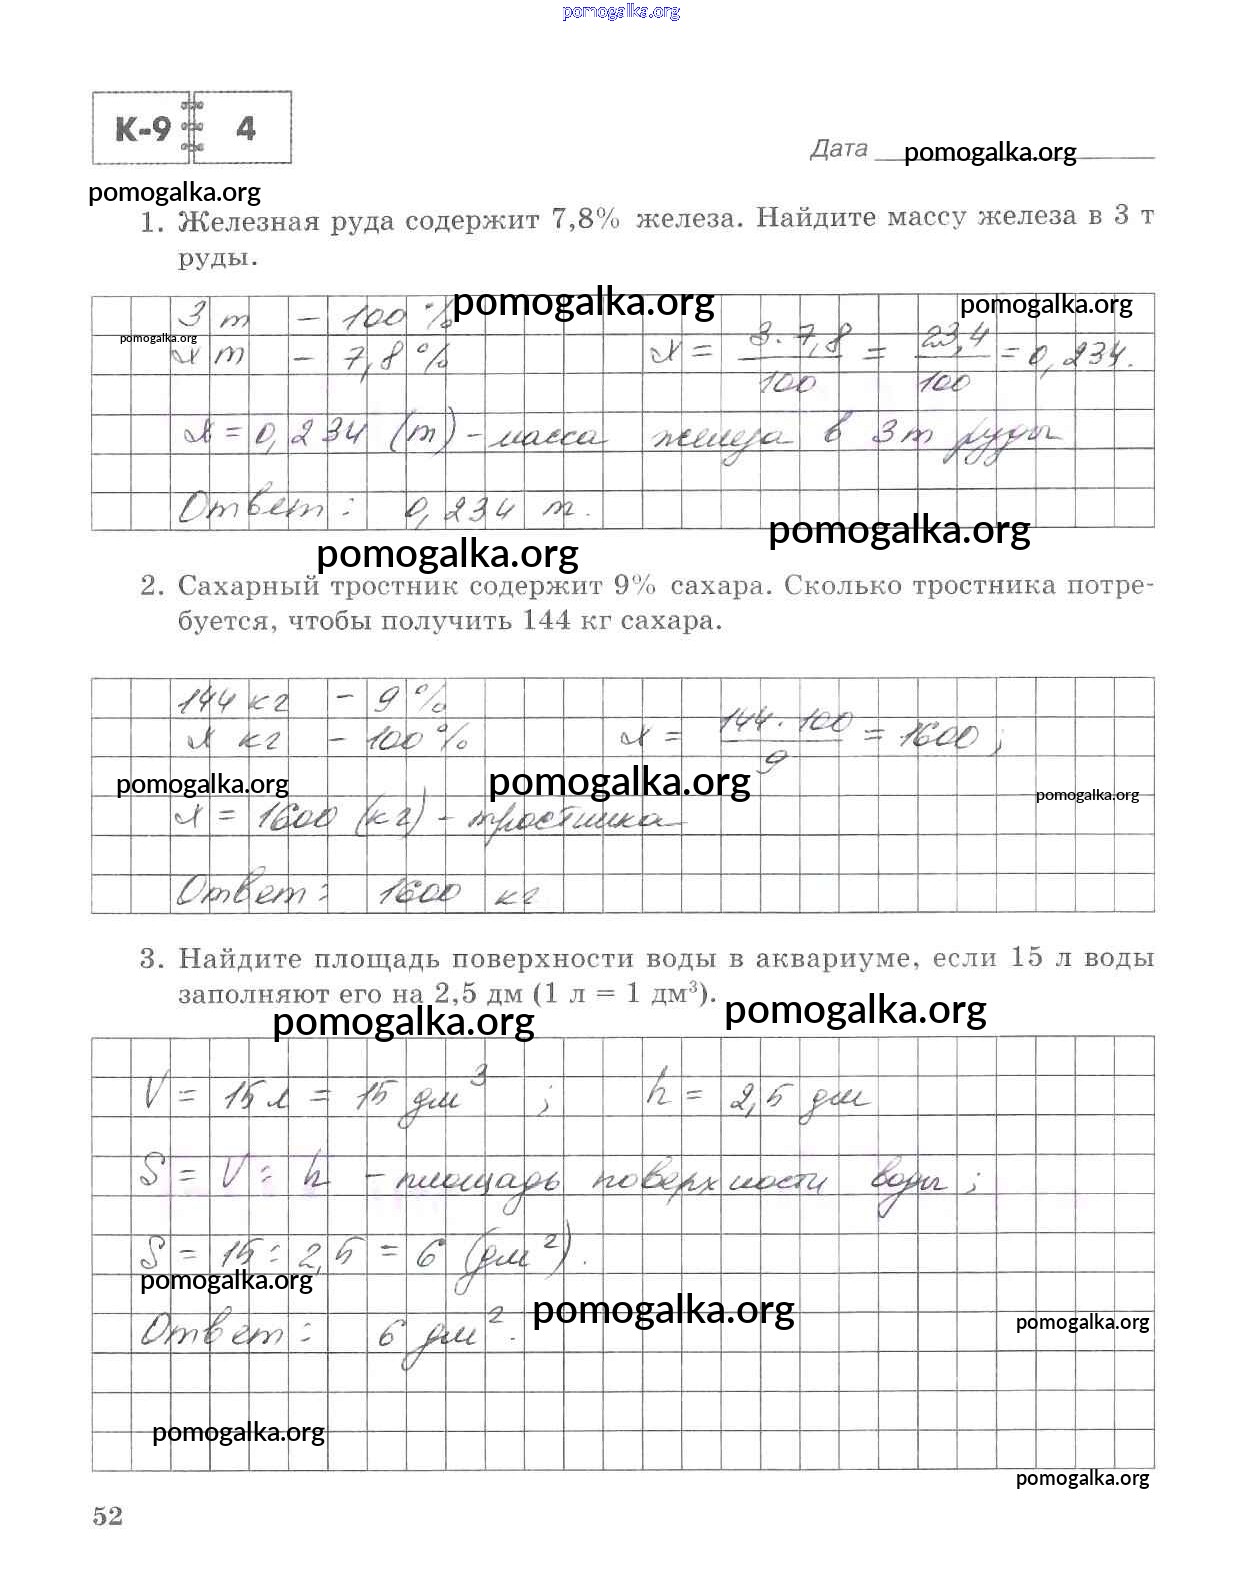 pomogalka.org
К-9 4
Дата pomogalka.org
pomogalka.org
1. Железная руда содержит 7,8% железа. Найдите массу железа в 3 т
руды.
pomogalka.org pomogalka.org
3 т – 100 %
pomogalka.org
х т – 7,8 % х = 3 · 7,8 / 100 = 23,4 / 100 = 0,234.
х = 0,234 (т) – масса железа в 3 т руды
Ответ: 0,234 т.
pomogalka.org
pomogalka.org
2. Сахарный тростник содержит 9% сахара. Сколько тростника потре-
буется, чтобы получить 144 кг сахара.
144 кг – 9 %
х кг – 100 % х = 144 · 100 / 9 = 1600 ;
pomogalka.org pomogalka.org pomogalka.org
х = 1600 (кг) – тростника
Ответ: 1600 кг
3. Найдите площадь поверхности воды в аквариуме, если 15 л воды
заполняют его на 2,5 дм (1 л = 1 дм³).
pomogalka.org pomogalka.org
V = 15 л = 15 дм³ ; h = 2,5 дм
S = V : h – площадь поверхности воды ;
S = 15 : 2,5 = 6 (дм²).
pomogalka.org
pomogalka.org pomogalka.org
Ответ: 6 дм².
pomogalka.org
pomogalka.org
52